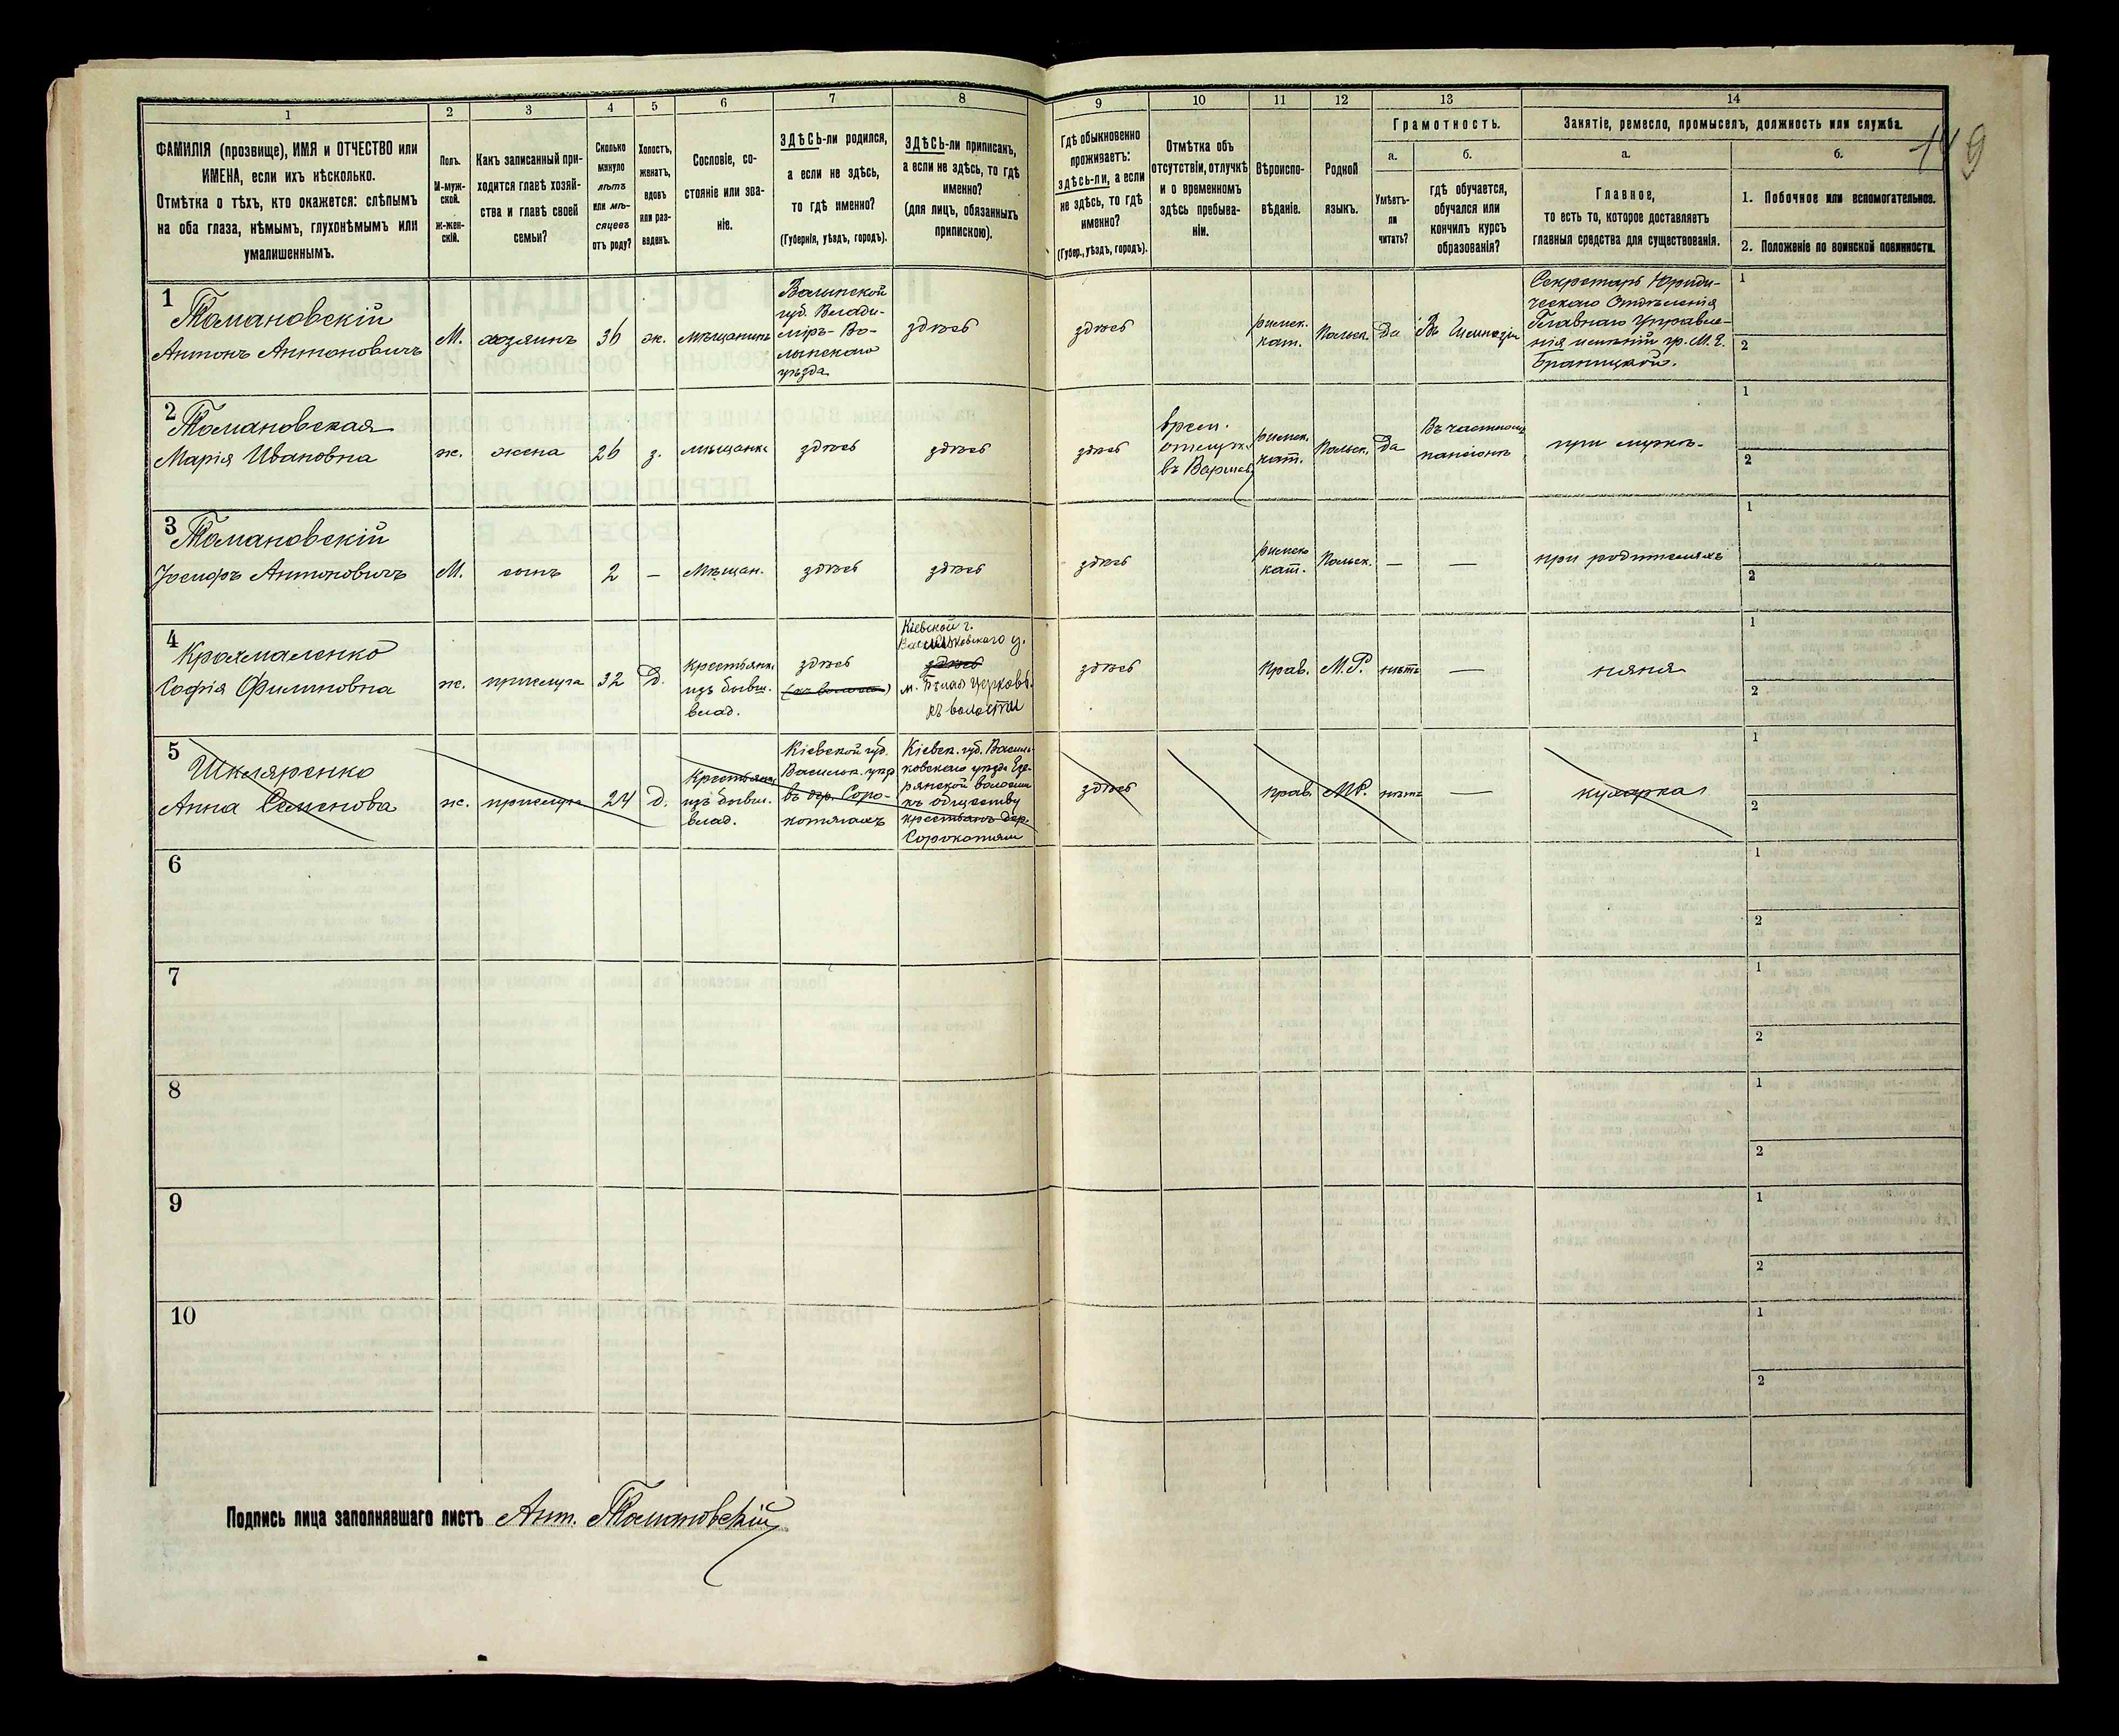 1
2
3
4
5
6
7
8
9
10
11
12
13
14
ФАМИЛІЯ (прозвище), ИМЯ и ОТЧЕСТВО или
ИМЕНА, если ихъ нѣсколько.
Отмѣтка о тѣхъ, кто окажется: слѣпымъ
на оба глаза, нѣмымъ, глухонѣмымъ или
умалишеннымъ.
Полъ.
М-муж-
ской.
Ж-жен-
скій.
Какъ записанный при-
ходится главѣ хозяй-
ства и главѣ своей
семьи?
Сколько
минуло
лѣтъ
или мѣ-
сяцевъ
отъ роду?
Холостъ,
женатъ,
вдовъ
или раз-
веденъ.
Сословіе, со-
стояніе или зва-
ніе.
ЗДѢСЬ-ли родился,
а если не здѣсь,
то гдѣ именно?
(Губернія, уѣздъ, городъ).
ЗДѢСЬ-ли приписанъ,
а если не здѣсь, то гдѣ
именно?
(для лицъ, обязанныхъ
припискою).
Гдѣ обыкновенно
проживаетъ:
здѣсь-ли, а если
не здѣсь, то гдѣ
именно?
(Губер., уѣздъ, городъ).
Отмѣтка объ
отсутствіи, отлучкѣ
и о временномъ
здѣсь пребыва-
ніи.
Вѣроиспо-
вѣданіе.
Родной
языкъ.
Грамотность.
а.
Умѣетъ-
ли
читать?
б.
гдѣ обучается,
обучался или
кончилъ курсъ
образованія?
Занятіе, ремесло, промыселъ, должность или служба.
а.
Главное,
то есть то, которое доставляетъ
главныя средства для существованія.
б.
1. Побочное или вспомогательное.
2. Положеніе по воинской повинности.
149
1
Томановскій
Антонъ Антоновичъ
М.
хозяинъ
36
ж.
мѣщанинъ
Волынской
губ. Влади-
міръ-Во-
лынскаго
уѣзда
здѣсь
здѣсь
римск.
кат.
Польск.
Да
Въ Гимназіи
Секретарь Юриди-
ческаго Отдѣленія
Главнаго Управле-
нія имѣній гр. М. Е.
Браницкой.
1
2
2
Томановская
Марія Ивановна
ж.
жена
26
з.
мѣщанка
здѣсь
здѣсь
здѣсь
врем.
отлучк.
въ Варшав.
римск.
кат.
Польск.
Да
Въ частномъ
пансіонѣ
при мужѣ.
1
2
3
Томановскій
Іосифъ Антоновичъ
М.
сынъ
2
—
Мѣщан.
здѣсь
здѣсь
здѣсь
римско
кат.
Польск.
—
—
при родителяхъ
1
2
4
Крахмаленко
Софія Филиповна
ж.
прислуга
32
д.
Крестьянка
изъ бывш.
влад.
здѣсь
Кіевской г.
Васильковскаго у.
здѣсь
м. Бѣлая Церковь.
къ волости
здѣсь
Прав.
М.Р.
нѣтъ
—
няня
1
2
5
Шкляренко
Анна Семенова
ж.
прислуга
24
д.
Крестьянка
изъ бывш.
влад.
Кіевской губ.
Васильк. уѣзд.
въ дер. Соро-
котягахъ
Кіевск. губ. Василь-
ковскаго уѣзда Езе-
рянской волости
къ обществу
крестьянъ дер.
Сорокотяги
здѣсь
прав.
М.Р.
нѣтъ
—
кухарка
1
2
6
1
2
7
1
2
8
1
2
9
1
2
10
1
2
Подпись лица заполнявшаго листъ Ант. Томановскій